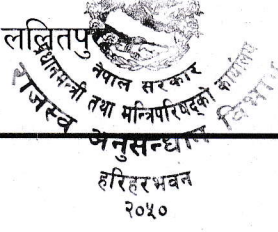 ललितपु
नेपाल सरकार
प्रधानमन्त्री तथा मन्त्रिपरिषद्को कार्यालय
राजस्व अनुसन्धान विभाग
हरिहरभवन
२०५०